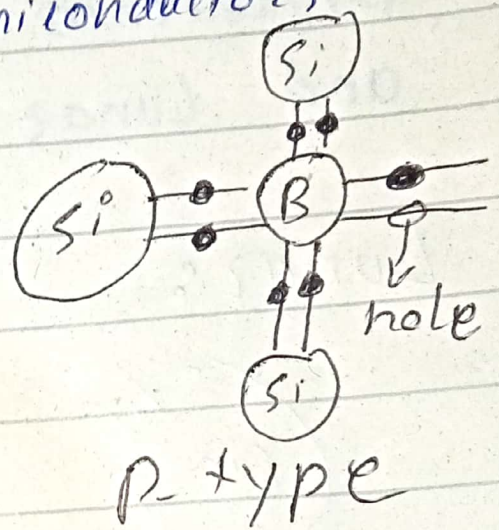 Si
Si
B
hole
Si
P-type